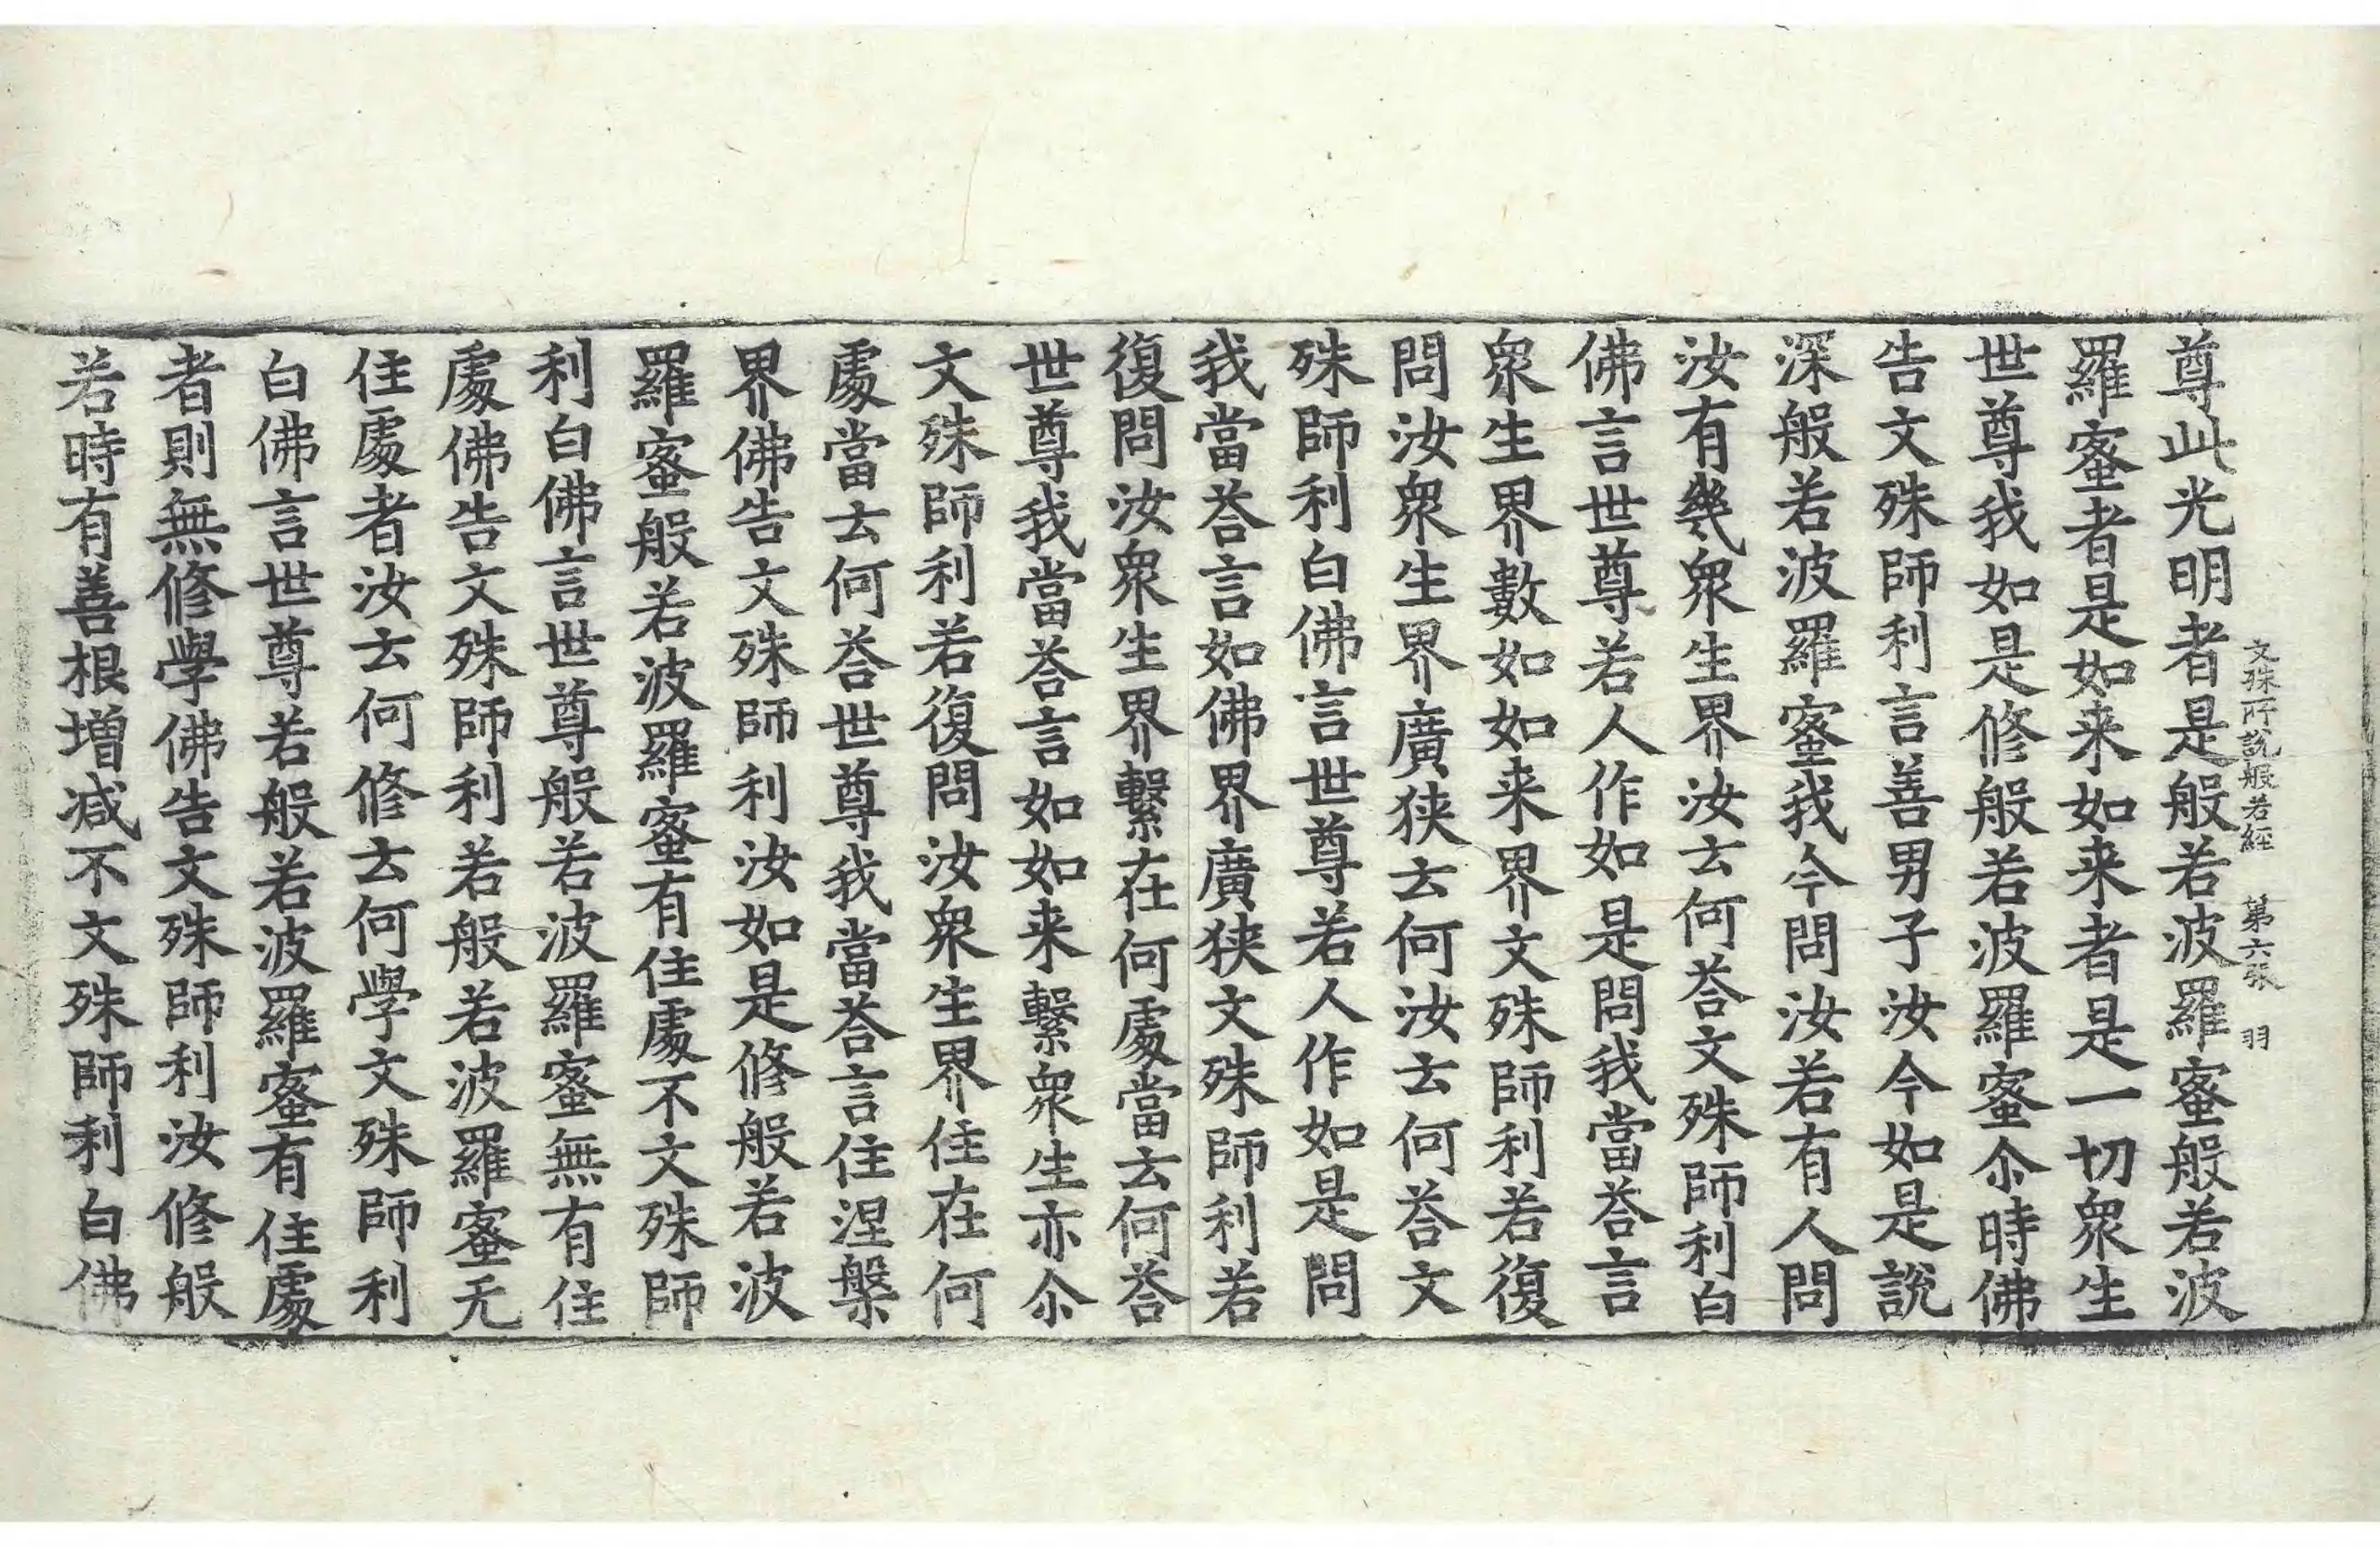 文殊所說般若經 第六張 羽
尊此光明者是般若波羅蜜般若波
羅蜜者是如来如来者是一切衆生
世尊我如是修般若波羅蜜尒時佛
告文殊師利言善男子汝今如是說
深般若波羅蜜我今問汝若有人問
汝有幾衆生界汝云何荅文殊師利白
佛言世尊若人作如是問我當荅言
衆生界數如如来界文殊師利若復
問汝衆生界廣狹云何汝云何荅文
殊師利白佛言世尊若人作如是問
我當荅言如佛界廣狹文殊師利若
復問汝衆生界繫在何處當云何荅
世尊我當荅言如如来繫衆生亦尒
文殊師利若復問汝衆生界住在何
處當云何荅世尊我當荅言住涅槃
界佛告文殊師利汝如是修般若波
羅蜜般若波羅蜜有住處不文殊師
利白佛言世尊般若波羅蜜無有住
處佛告文殊師利若般若波羅蜜无
住處者汝云何修云何學文殊師利
白佛言世尊若般若波羅蜜有住處
者則無修學佛告文殊師利汝修般
若時有善根增减不文殊師利白佛